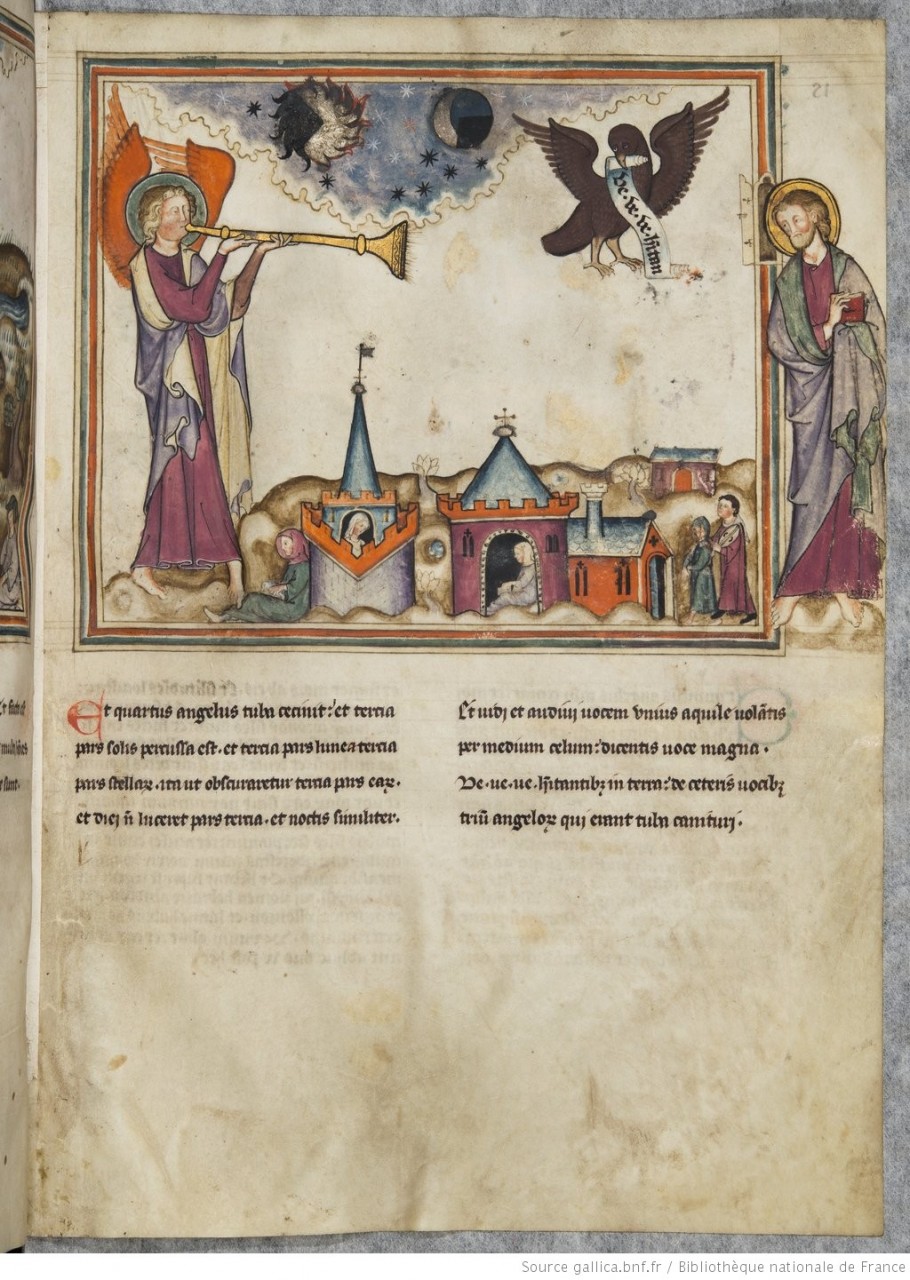 Ve. ve. ve. hītan
Et quartus angelus tuba cecinit: et tercia
pars solis percussa est. et tercia pars lune a tercia
pars stellaꝝ. ita ut obscuraretur tercia pars eaꝝ.
et diei n̄ luceret pars tercia. et noctis similiter.
Et uidi et audiui uocem unius aquile uolātis
per medium celum: dicentis uoce magna.
Ve. ue. ue. hītantibꝫ in terra: de ceteris uocibꝫ
triū angeloꝝ qui erant tuba canituri.
Source gallica.bnf.fr / Bibliothèque nationale de France